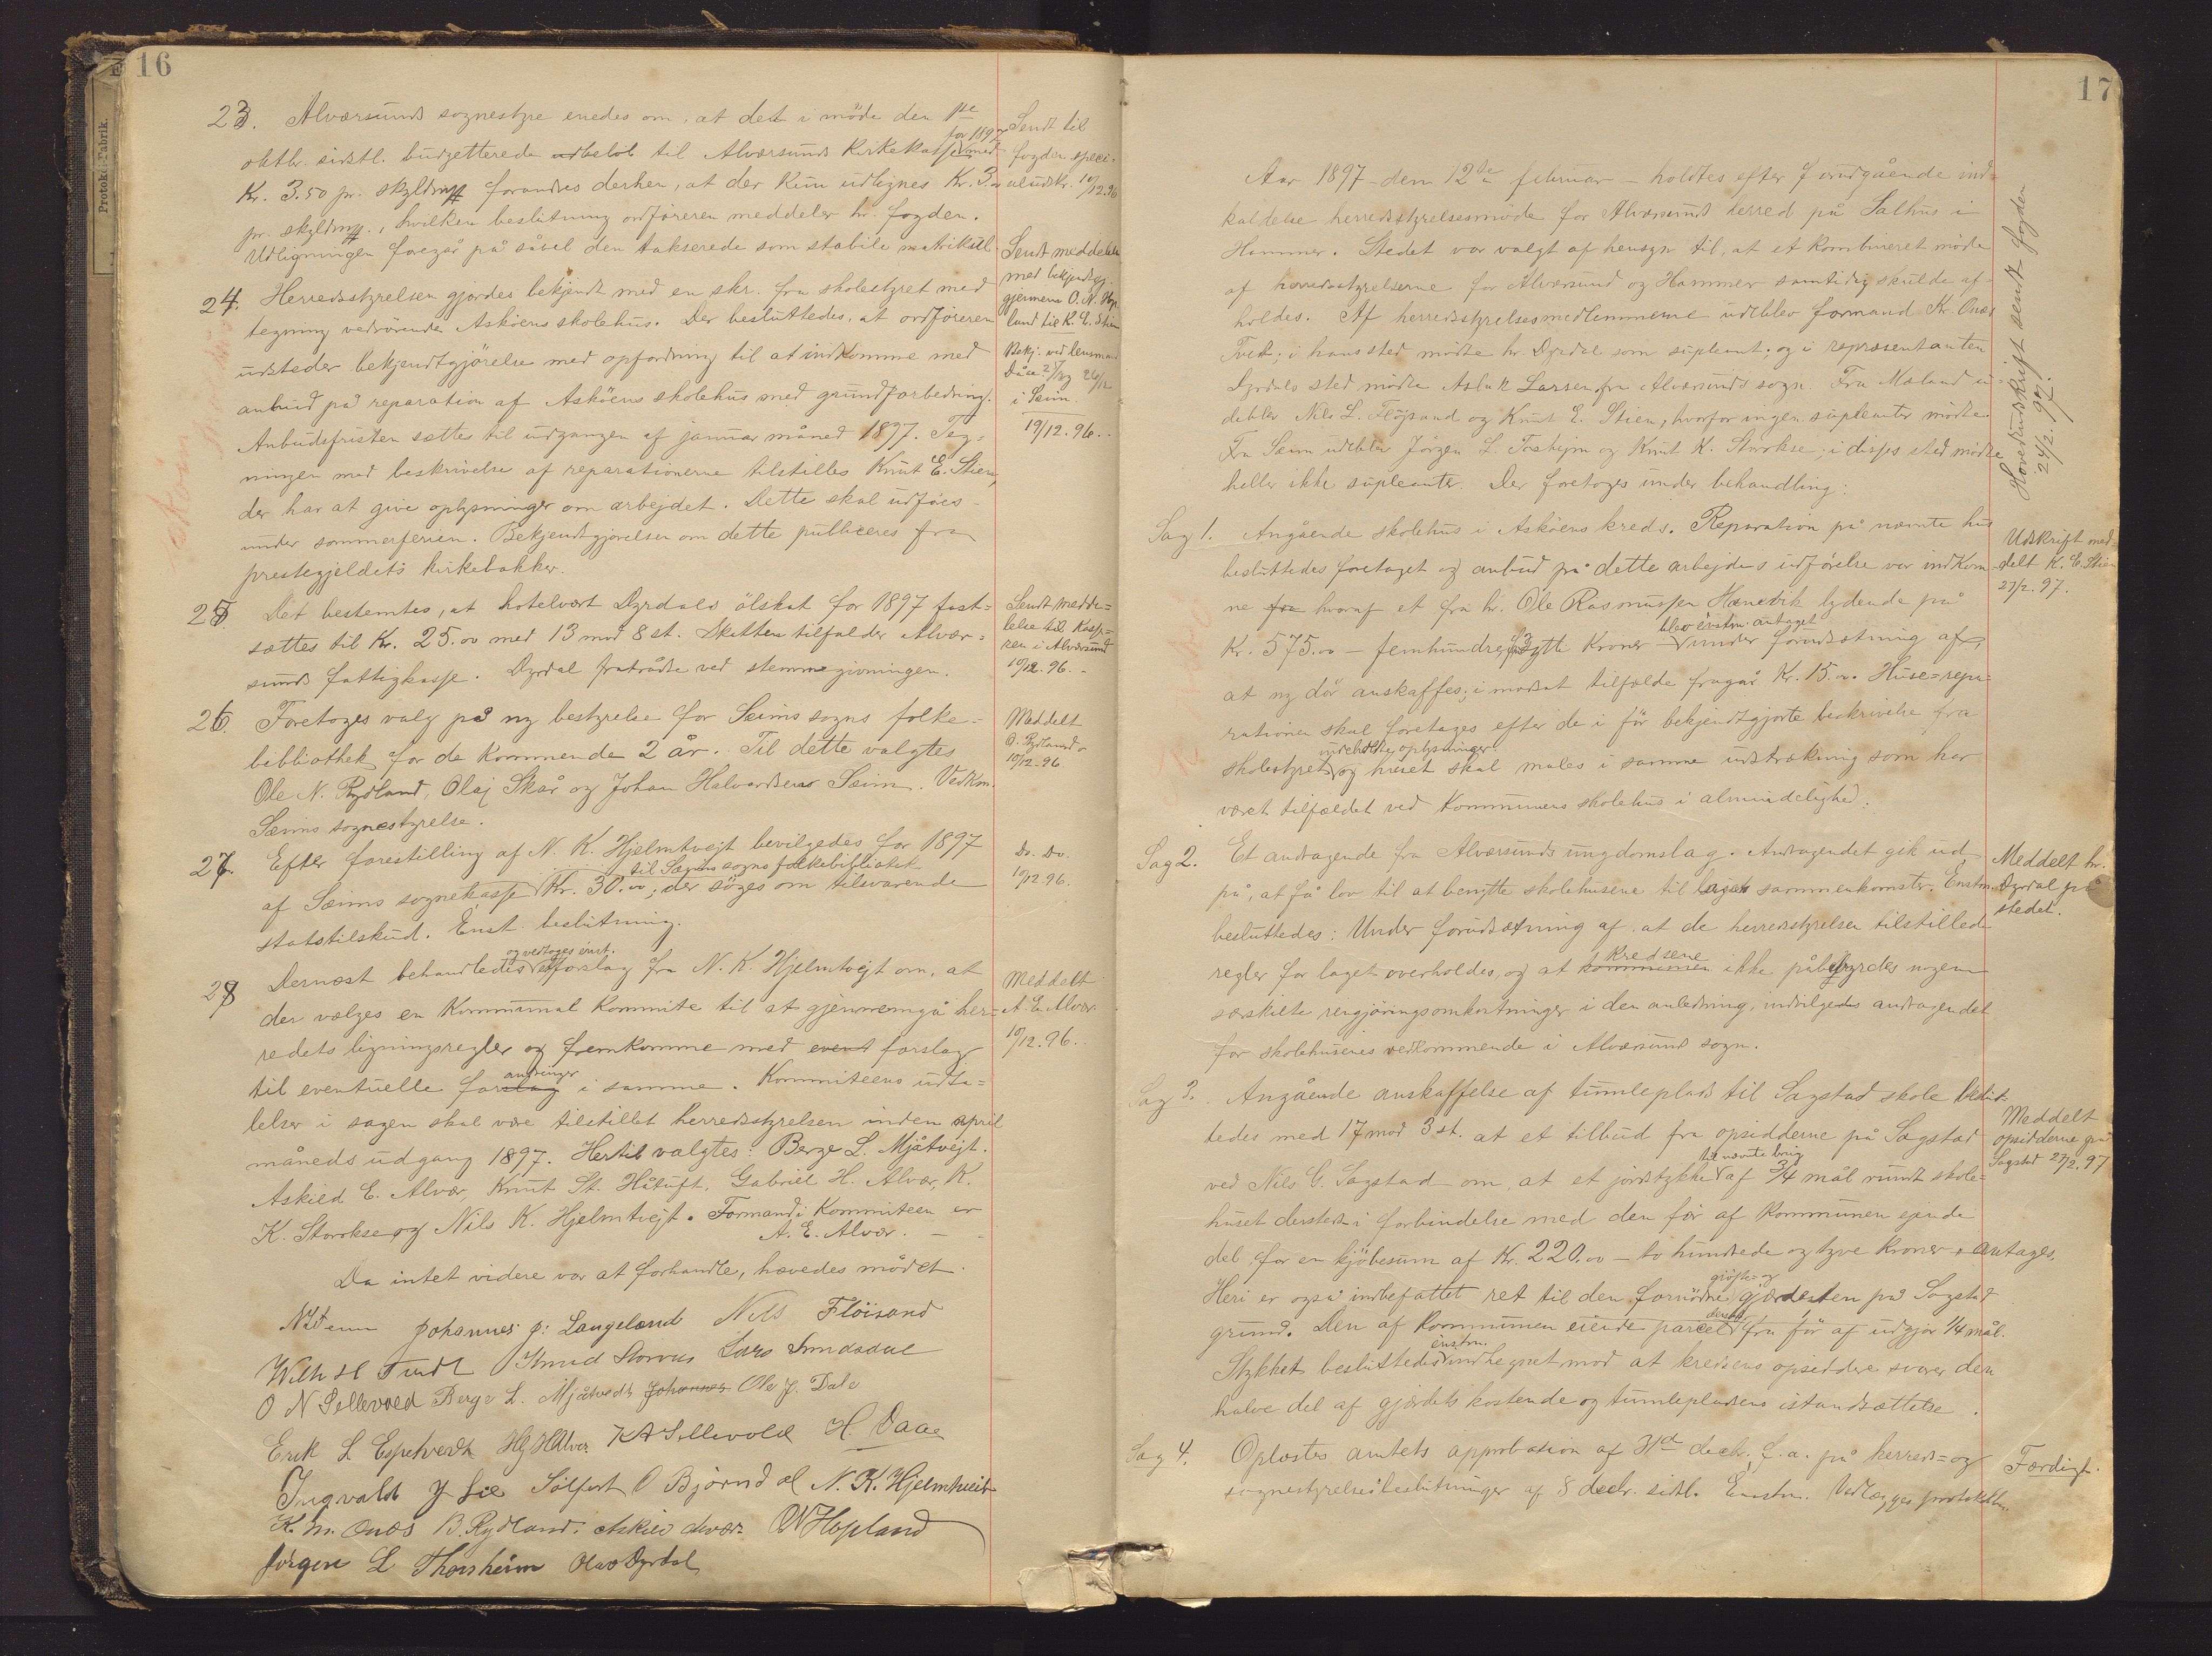 16
23. Alværsunds sognestyre enedes om, at det i möde den 1ste
oktbr. sidstl. budgetterede udbeløb til Alværsunds kirkekasse for 1897 med
Kr. 3.50 pr. skyldmk forandres derhen, at der kun udlignes Kr. 3.00
pr. skyldmk., hvilken beslutning ordføreren meddeler hr. fogden.
Udligningen foregår på såvel den takserede som stabile matrikul.
Sendt til
fogden speci-
aludskr. 10/12.96
24. Herredsstyrelsen gjordes bekjendt med en skr. fra skolestyret med
tegning vedrørende Asköens skolehus. Der besluttedes, at ordføreren
udsteder bekjendtgjörelse med opfordning til at indkomme med
anbud på reparation af Asköens skolehus med grundforbedring.
Anbudsfristen sættes til udgangen af januar måned 1897. Teg-
ningen med beskrivelse af reparationerne tilstilles Knut E. Stien,
der har at give oplysninger om arbejdet. Dette skal udföres
under sommerferien. Bekjendtgjörelsen om dette publiceres fra
prestegjeldets kirkebakker.
Sendt meddelelse
med bekjendtgj.
gjennem O. N. Hop-
land til K. E. Stien
Bekj. ved lensmand
Dåe
i Seim.
19/12.96.
25 Det bestemtes, at hotelvært Dyrdals ölskat for 1897 fast-
sættes til Kr. 25.00 med 13 mod 8 st. Skatten tilfalder Alvær-
sunds fattigkasse. Dyrdal fratrådte ved stemmegivningen.
Sendt medde-
lelse til kasse-
ren i Alværsund
10/12.96.
26. Foretoges valg på ny bestyrelse for Seims sogns folke-
bibliothek for de kommende 2 år. Til dette valgtes
Ole N. Rydland, Olaj Skår og Johan Halvardsens Seim. Vedkm.
Sæims sognestyrelse.
Meddelt
O. Rydland
10/12.96
27. Efter forestilling af N. K. Hjelmtvejt bevilgedes for 1897
af Sæims sognekasse til Sæims sogns folkebibliotek Kr. 30.00; der söges om tilsvarende
statstilskud. Enst. beslutning.
Do. Do.
10/12.96.
28 Dernæst behandledes og vedtoges enst. et forslag fra N. K. Hjelmtvejt om, at
der vælges en Kommunal Kommite til at gjennemgå her-
redets ligningsregler og fremkomme med event forslag
til eventuelle forslag andringer i samme. Kommiteens udta-
lelser i sagen skal være tilstillet herredsstyrelsen inden april
måneds udgang 1897. Hertil valgtes: Berge L. Mjåtvejt.
Askild E. Alvær, Knut St. Håtuft, Gabriel H. Alvær, K.
K. Storokse og Nils K. Hjelmtvejt. Formand i Kommiteen er
A. E. Alvær.
Meddelt
A. E. Alvær
10/12.96.
Da intet videre var at forhandle, hævedes mødet.
Johannes J: Langeland Nils Flöisand
Wilh H Tundt Knud Storvus Lars Smdsdal
O N Sellevold Berge L. Mjåtvedt Johannes Ole J. Dale
Erik L Espetvedt HgHAlver KA Sellevold H. Daae
Ingvald J Lie Sölfest O Björndal N. K. Hjelmtveit
K. M. Onæs B. Rydland. Askild Alvær ON Hopland
Jörgen L Thorsheim Olav Dyrdal
17
Aar 1897 den 12te februar holdtes efter forudgående ind-
kaldelse herredsstyrelsesmöde for Alværsund herred på Salhus i
Hammer. Stedet var valgt af hensyn til, at et kombineret möde
af herredsstyrelserne for Alværsund og Hammer samtidig skulde af-
holdes. Af herredsstyrelsesmedlemmerne udeblev formand Kr. Onæs
Tveit; i hans sted mödte hr. Dyrdal som supleant; og i repræsentanten
Dyrdals sted mödte Aslak Larsen fra Alværsunds sogn. Fra Mæland u-
debler Nils L. Flöjsand og Knut E. Stien, hvorfor ingen supleanter mödte.
Fra Seim udebler Jörgen L. Toshejm og Knut K. Storokse; i disses sted mödte
heller ikke supleanter. Der foretoges under behandling:
Hovedudskrift sendt fogden
24/2.97.
Sag 1. Angående skolehus i Asköens kreds. Reparation på nævnte hus
besluttedes foretaget og anbud på dette arbejdes udførelse var indkom-
ne fra hvoraf et fra hr. Ole Rasmussen Hanevik lydende på
Kr. 575.00 – femhundredesyttifem Kroner blev enstm. antaget under forudsætning af,
at ny dör anskaffes; i modsat tilfælde fragår Kr. 15.00. Huse-repa-
rationen skal foretages efter de i för bekjendtgjorte beskrivelse fra
skolestyret indeholdte oplysninger og huset skal males i samme udstrækning som har
været tilfældet ved Kommunens skolehus i almindelighed.
Udskrift med-
delt K. E. Stien
27/2.97.
Sag 2. Et andragende fra Alværsunds ungdomslag. Andragendet gik ud
på, at få lov til at benytte skolehusene til lagets sammenkomster. Enstm.
besluttedes: Under forudsætning af at de herredsstyrelsen tilstillede
regler for laget overholdes, og at kommunen kredsene ikke påbyrdes nogen
særskilte rengjöringsomkostninger i den anledning, indvilgedes andragendet
for skolehusenes vedkommende i Alværsund sogn.
Meddelt hr.
Dyrdal på
stedet.
Sag 3. Angående anskaffelse af tumleplads til Sagstad skole beslut-
tedes med 17 mod 3 st. at et tilbud fra opsidderne på Sagstad
ved Nils G. Sagstad om, at et jordstykke til nævnte brug af 3/4 mål rundt skole-
huset dersteds i forbindelse med den för af Kommunen ejende
del, for en kjöbesum af Kr. 220.00 – to hundrede og tyve kroner, antages.
Heri er også indbefattet ret til den fornödne gröfte- og gjærdesten på Sagstad
grund. Den af Kommunen eiende parcel dersteds fra för af udgjör 1/4 mål.
Stykket besluttedes enstm. indhegnet mod at kredsens opsiddere svarer den
halve del af gjærdets kostende og tumlepladsens istandsættelse.
Meddelt
opsidderne på
Sagstad 27/2.97
Sag 4. Oplæstes amtets approbasion af 31te decb. f. a. på herreds- og
sognestyrelsesbeslutninger af 8 decbr. sidstl. Enstm. Vedlægges protokollen.
Færdigt.